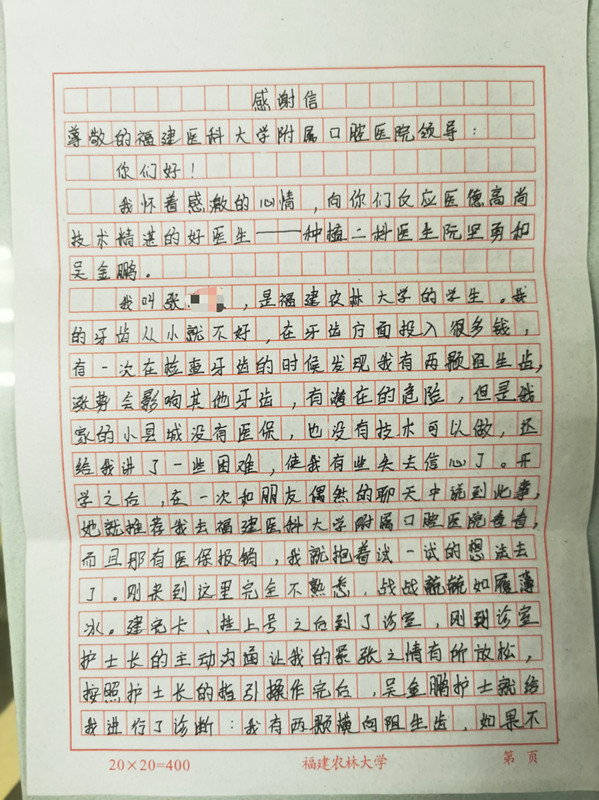 感谢信
尊敬的福建医科大学附属口腔医院领导：
你们好！
我怀着感激的心情，向你们反应医德高尚
技术精湛的好医生——种植二科医生阮坚勇和
吴金鹏。
我叫张，是福建农林大学的学生。我
的牙齿从小就不好，在牙齿方面投入很多钱，
有一次在检查牙齿的时候发现我有两颗阻生齿，
涨势会影响其他牙齿，有潜在的危险，但是我
家的小县城没有医保，也没有技术可以做，还
给我讲了一些困难，使我有些失去信心了。开
学之后，在一次和朋友偶然的聊天中说到此事，
她就推荐我去福建医科大学附属口腔医院查查，
而且那有医保报销，我就抱着试一试的想法去
了。刚来到这里完全不熟悉，战战兢兢如履薄
冰。建完卡，挂上号之后到了诊室，刚到诊室
护士长的主动沟通让我的紧张之情有所放松，
按照护士长的指引操作完后，吴金鹏护士就给
我进行了诊断：我有两颗横向阻生齿，如果不
20×20=400 福建农林大学 第 页